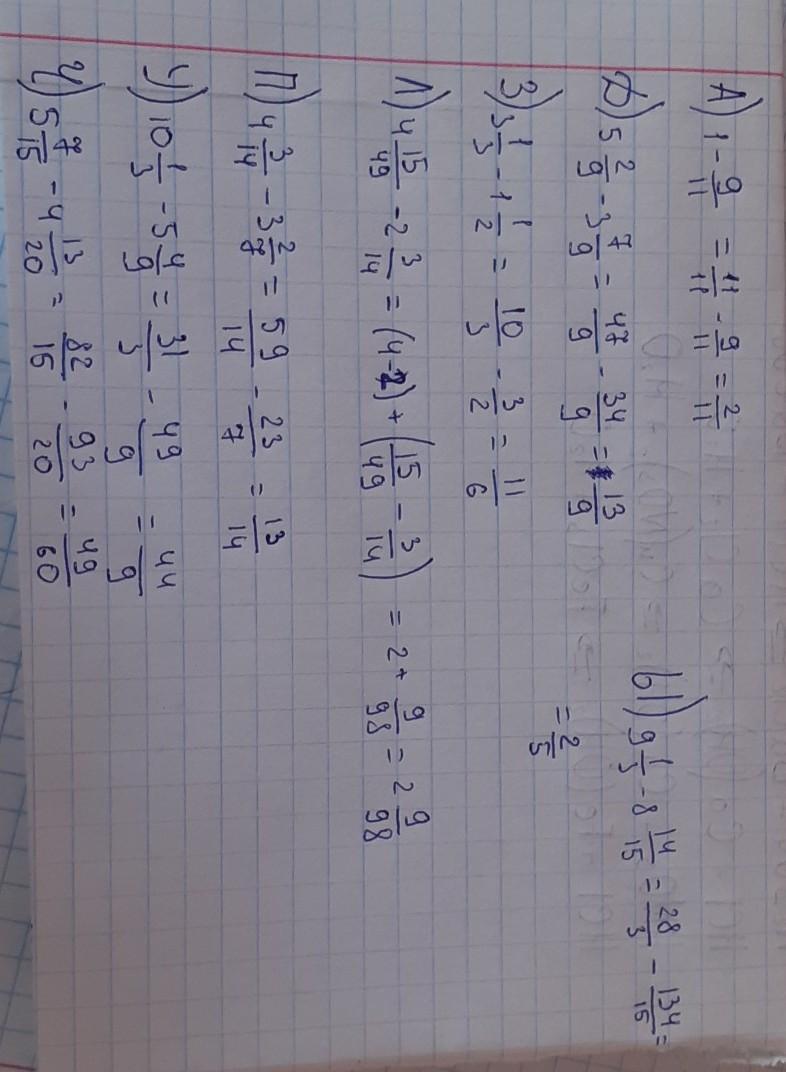 А) 1 - 9/11 = 11/11 - 9/11 = 2/11
Д) 5 2/9 - 3 7/9 = 47/9 - 34/9 = 13/9
З) 3 1/3 - 1 1/2 = 10/3 - 3/2 = 11/6
Л) 4 15/49 - 2 3/14 = (4-2) + (15/49 - 3/14) = 2 + 9/98 = 2 9/98
П) 4 3/14 - 3 2/7 = 59/14 - 23/7 = 13/14
У) 10 1/3 - 5 4/9 = 31/3 - 49/9 = 44/9
Ц) 5 7/15 - 4 13/20 = 82/15 - 93/20 = 49/60
Ы) 9 1/3 - 8 14/15 = 28/3 - 134/15 =
= 2/5